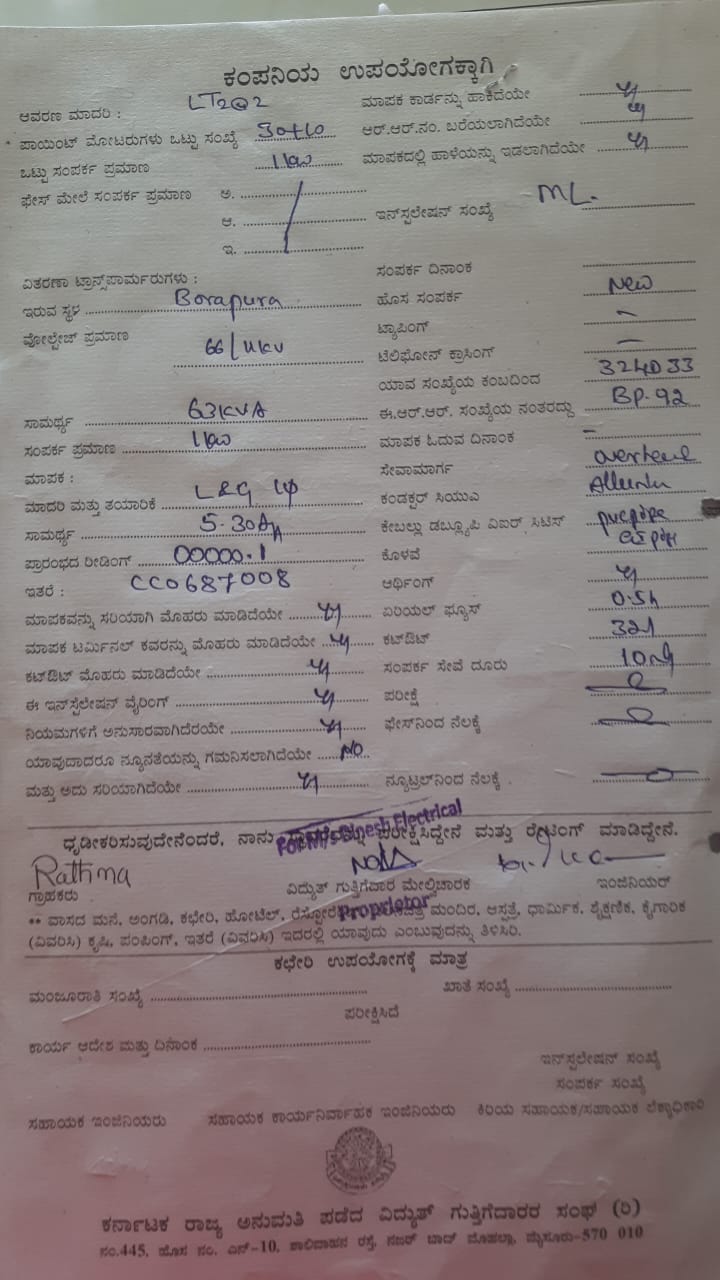 ಕಂಪನಿಯ ಉಪಯೋಗಕ್ಕಾಗಿ
ಆವರಣ ಮಾದರಿ : LT2a2 ಮಾಪಕ ಕಾರ್ಡನ್ನು ಹಾಕಿದೆಯೇ
ಪಾಯಿಂಟ್ ಮೋಟರುಗಳು ಒಟ್ಟು ಸಂಖ್ಯೆ 30+10 ಆರ್.ಆರ್.ನಂ. ಬರೆಯಲಾಗಿದೆಯೇ
ಒಟ್ಟು ಸಂಪರ್ಕ ಪ್ರಮಾಣ 1kw ಮಾಪಕದಲ್ಲಿ ಹಾಳೆಯನ್ನು ಇಡಲಾಗಿದೆಯೇ
ಫೇಸ್ ಮೇಲೆ ಸಂಪರ್ಕ ಪ್ರಮಾಣ ಅ.
ಆ. ಇನ್‌ಸ್ಪಲೇಷನ್ ಸಂಖ್ಯೆ ML.
ಇ.
ವಿತರಣಾ ಟ್ರಾನ್ಸ್‌ಫಾರ್ಮರುಗಳು : ಸಂಪರ್ಕ ದಿನಾಂಕ
ಇರುವ ಸ್ಥಳ Borapura ಹೊಸ ಸಂಪರ್ಕ New
ವೋಲ್ಟೇಜ್ ಪ್ರಮಾಣ 66/11kv ಟ್ಯಾಪಿಂಗ್ –
ಟೆಲಿಫೋನ್ ಕ್ರಾಸಿಂಗ್ –
ಯಾವ ಸಂಖ್ಯೆಯ ಕಂಬದಿಂದ 324D33
ಸಾಮರ್ಥ್ಯ 63KVA ಈ.ಆರ್.ಆರ್. ಸಂಖ್ಯೆಯ ನಂತರದ್ದು BP-92
ಸಂಪರ್ಕ ಪ್ರಮಾಣ 1kw ಮಾಪಕ ಓದುವ ದಿನಾಂಕ –
ಮಾಪಕ : ಸೇವಾಮಾರ್ಗ overhead
ಮಾದರಿ ಮತ್ತು ತಯಾರಿಕೆ L&G 1φ ಕಂಡಕ್ಟರ್ ಸಿಯುಎ
ಸಾಮರ್ಥ್ಯ 5-30A ಕೇಬಲ್ಲು ಡಬ್ಲ್ಯೂಪಿ ವಿಐರ್ ಸಿಟಿಸ್
ಪ್ರಾರಂಭದ ರೀಡಿಂಗ್ 00000.1 ಕೊಳವೆ
ಇತರೆ : CC0687008 ಆರ್ಥಿಂಗ್
ಮಾಪಕವನ್ನು ಸರಿಯಾಗಿ ಮೊಹರು ಮಾಡಿದೆಯೇ ಏರಿಯಲ್ ಫ್ಯೂಸ್
ಮಾಪಕ ಟರ್ಮಿನಲ್ ಕವರನ್ನು ಮೊಹರು ಮಾಡಿದೆಯೇ ಕಟ್‌ಔಟ್
ಕಟ್‌ಔಟ್ ಮೊಹರು ಮಾಡಿದೆಯೇ ಸಂಪರ್ಕ ಸೇವೆ ದೂರು
ಈ ಇನ್‌ಸ್ಪಲೇಷನ್ ವೈರಿಂಗ್ ಪರೀಕ್ಷೆ
ನಿಯಮಗಳಿಗೆ ಅನುಸಾರವಾಗಿದೆರೆಯೇ ಫೇಸ್‌ನಿಂದ ನೆಲಕ್ಕೆ
ಯಾವುದಾದರೂ ನ್ಯೂನತೆಯನ್ನು ಗಮನಿಸಲಾಗಿದೆಯೇ NO
ಮತ್ತು ಅದು ಸರಿಯಾಗಿದೆಯೇ ನ್ಯೂಟ್ರಲ್‌ನಿಂದ ನೆಲಕ್ಕೆ
ಧೃಡೀಕರಿಸುವುದೇನೆಂದರೆ, ನಾನು ಪರೀಕ್ಷಿಸಿದ್ದೇನೆ ಮತ್ತು ರೇಟಿಂಗ್ ಮಾಡಿದ್ದೇನೆ.
For M/s Dinesh Electrical
Rathma
ಗ್ರಾಹಕರು ವಿದ್ಯುತ್ ಗುತ್ತಿಗೆದಾರ ಮೇಲ್ವಿಚಾರಕ ಇಂಜಿನಿಯರ್
Proprietor
** ವಾಸದ ಮನೆ, ಅಂಗಡಿ, ಕಛೇರಿ, ಹೋಟೆಲ್, ಮಂದಿರ, ಆಸ್ಪತ್ರೆ, ಧಾರ್ಮಿಕ, ಶೈಕ್ಷಣಿಕ, ಕೈಗಾರಿಕ
(ವಿವರಿಸಿ) ಕೃಷಿ, ಪಂಪಿಂಗ್, ಇತರೆ (ವಿವರಿಸಿ) ಇದರಲ್ಲಿ ಯಾವುದು ಎಂಬುವುದನ್ನು ತಿಳಿಸಿರಿ.
ಕಛೇರಿ ಉಪಯೋಗಕ್ಕೆ ಮಾತ್ರ
ಮಂಜೂರಾತಿ ಸಂಖ್ಯೆ ಖಾತೆ ಸಂಖ್ಯೆ
ಪರೀಕ್ಷಿಸಿದೆ
ಕಾರ್ಯ ಆದೇಶ ಮತ್ತು ದಿನಾಂಕ
ಇನ್‌ಸ್ಪಲೇಷನ್ ಸಂಖ್ಯೆ
ಸಂಪರ್ಕ ಸಂಖ್ಯೆ
ಸಹಾಯಕ ಇಂಜಿನಿಯರು ಸಹಾಯಕ ಕಾರ್ಯನಿರ್ವಾಹಕ ಇಂಜಿನಿಯರು ಕಿರಿಯ ಸಹಾಯಕ/ಸಹಾಯಕ ಲೆಕ್ಕಾಧಿಕಾರಿ
ಕರ್ನಾಟಕ ರಾಜ್ಯ ಅನುಮತಿ ಪಡೆದ ವಿದ್ಯುತ್ ಗುತ್ತಿಗೆದಾರರ ಸಂಘ (ರಿ)
ನಂ.445, ಹೊಸ ನಂ. ಎನ್-10, ಶಾಲಿವಾಹನ ರಸ್ತೆ, ನಜರ್ ಬಾದ್ ಮೊಹಲ್ಲಾ, ಮೈಸೂರು-570 010